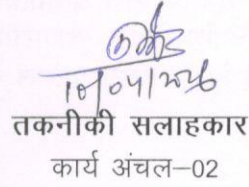 10/04/2026
तकनीकी सलाहकार
कार्य अंचल–02